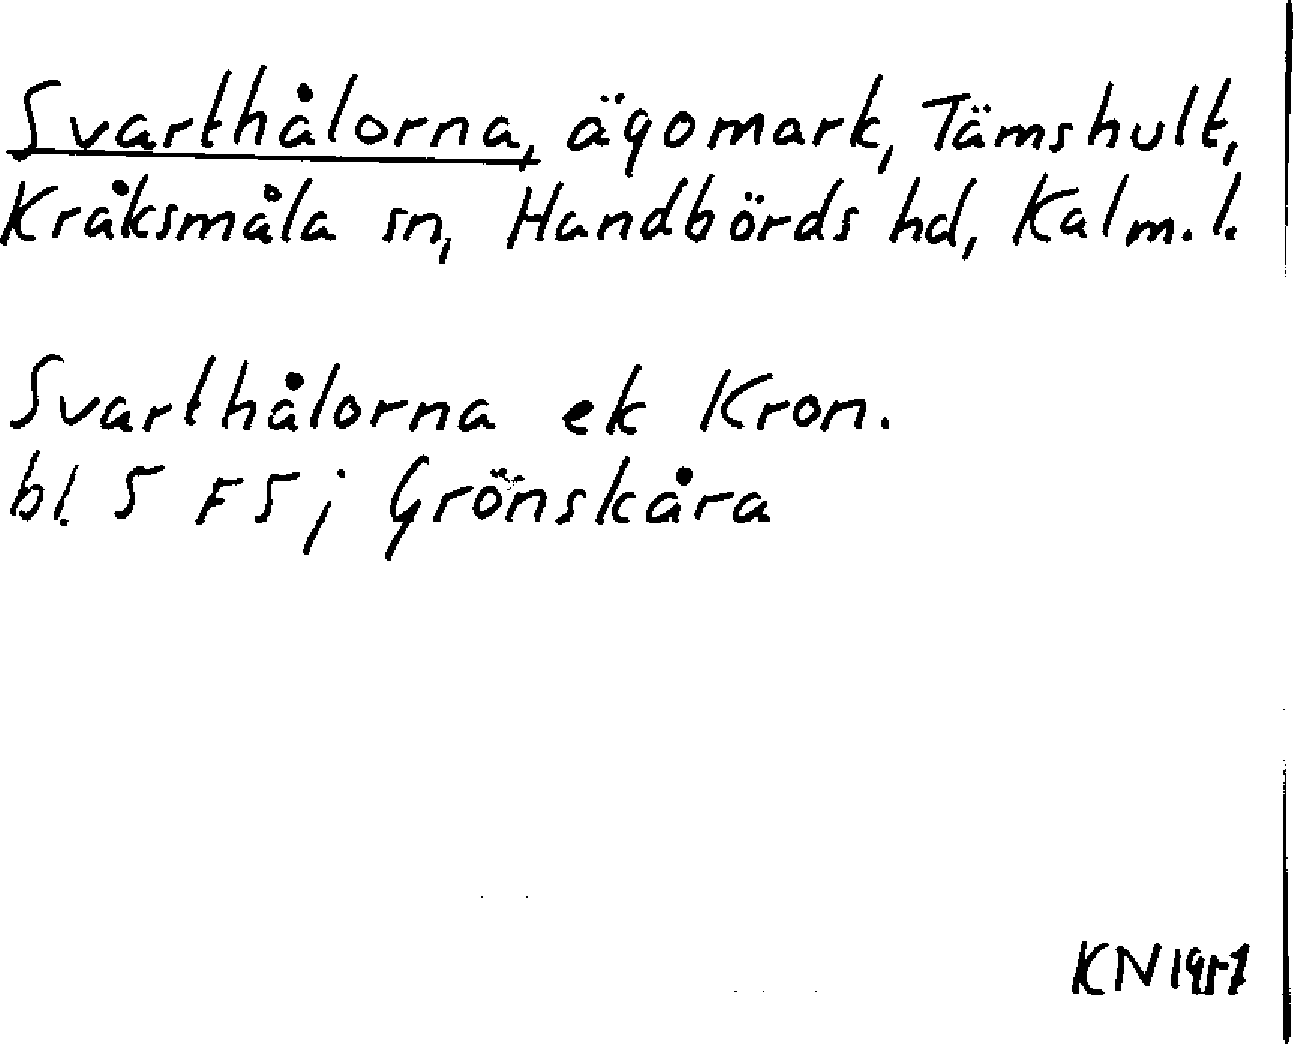 Svarthålorna, ägomark, Tämshult,
Kråksmåla sn, Handbörds hd, Kalm. l.
Svarthålorna ek Kron.
bl. 5 F 5 j Grönskåra
KN 1957